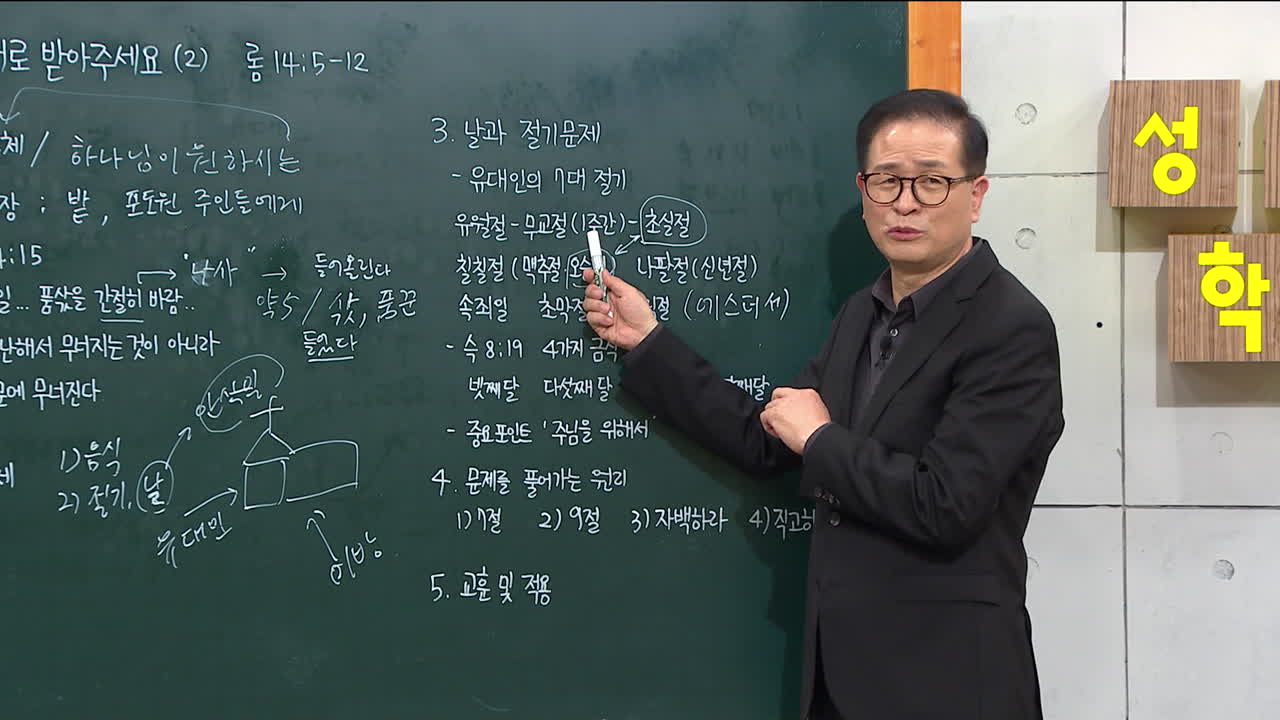 로 받아주세요 (2) 롬 14:5-12
체 / 하나님이 원하시는
장 : 밭, 포도원 주인들에게
:15
"낫사" → 들어올린다
일... 품삯을 간절히 바람.. 약 5 / 삯, 품꾼
해서 무너지는 것이 아니라 들었다
에 무너진다
안식일
1) 음식
2) 절기, 날
유대인
이방
3. 날과 절기문제
- 유대인의 7대 절기
유월절 - 무교절 (1주간) - 초실절
칠칠절 (맥추절 나팔절 (신년절)
속죄일 초막절 (에스더서)
- 슥 8:19 4가지 금식
넷째달 다섯째달 째달
- 중요포인트 '주님을 위해서'
4. 문제를 풀어가는 원리
1) 7절 2) 9절 3) 자백하라 4) 직고하
5. 교훈 및 적용
성
학